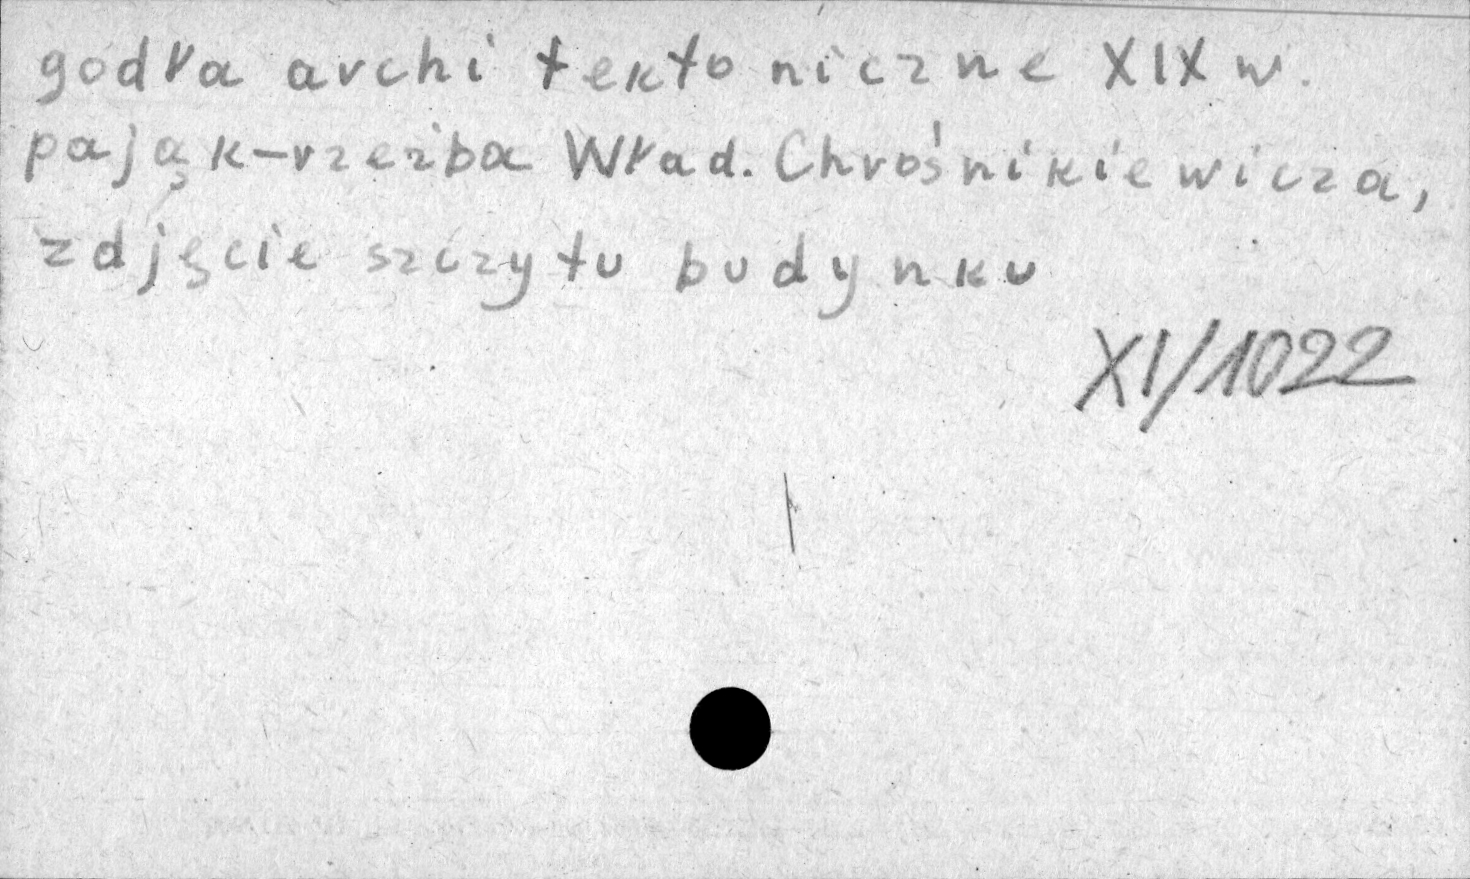 godła architektoniczne XIX w.
pająk-rzeźba Wład. Chrośnikiewicza,
zdjęcie szczytu budynku
XI/1022